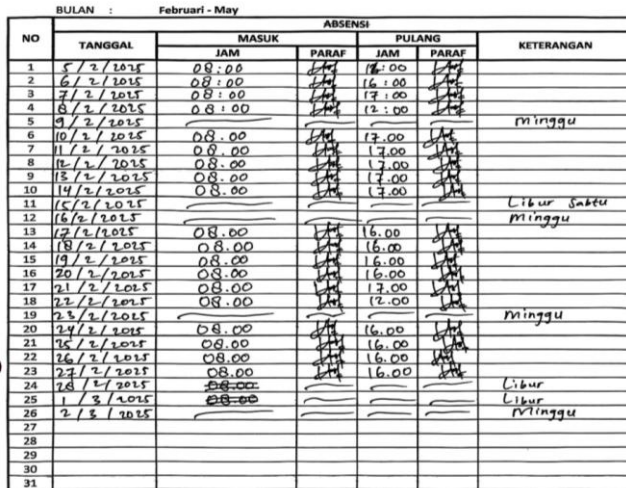 BULAN : Februari - May
ABSENSI
NO TANGGAL MASUK PULANG KETERANGAN
JAM PARAF JAM PARAF
1 5/2/2025 08:00 16:00
2 6/2/2025 08:00 16:00
3 7/2/2025 08:00 17:00
4 8/2/2025 08:00 12:00
5 9/2/2025 minggu
6 10/2/2025 08.00 17.00
7 11/2/2025 08.00 17.00
8 12/2/2025 08.00 17.00
9 13/2/2025 08.00 17.00
10 14/2/2025 08.00 17.00
11 15/2/2025 Libur Sabtu
12 16/2/2025 minggu
13 17/2/2025 08.00 16.00
14 18/2/2025 08.00 16.00
15 19/2/2025 08.00 16.00
16 20/2/2025 08.00 16.00
17 21/2/2025 08.00 17.00
18 22/2/2025 08.00 12.00
19 23/2/2025 minggu
20 24/2/2025 08.00 16.00
21 25/2/2025 08.00 16.00
22 26/2/2025 08.00 16.00
23 27/2/2025 08.00 16.00
24 28/2/2025 08.00 Libur
25 1/3/2025 08.00 Libur
26 2/3/2025 Minggu
27
28
29
30
31